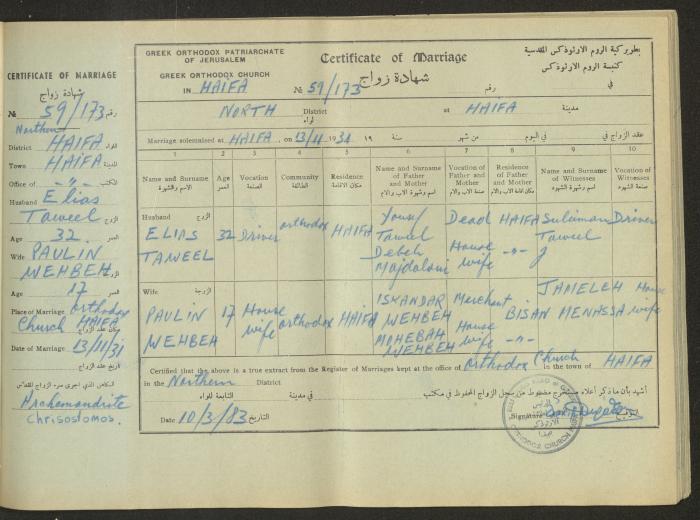 CERTIFICATE OF MARRIAGE
شهادة زواج
№ 59/173 رقم
Northern
District HAIFA لواء
Town HAIFA المدينة
Office of -"- المكتب
Husband Elias
Taweel الزوج
Age 32. العمر
Wife PAULIN
WEHBEH الزوجة
Age 17 العمر
Place of Marriage Orthodox
Church HAIFA
مكان عقد الزواج
Date of Marriage 13/11/31
تاريخ عقد الزواج
الكاهن الذي اجرى سره الزواج المقدس
Archemandrite
Chrisostomos.
GREEK ORTHODOX PATRIARCHATE
OF JERUSALEM
GREEK ORTHODOX CHURCH
IN HAIFA
Certificate of Marriage
شهادة زواج
№ 59/173 رقم
بطريركية الروم الارثوذكس المقدسية
كنيسة الروم الارثوذكس
في
NORTH District لواء at HAIFA مدينة
Marriage solemnised at HAIFA, on 13/11 1931 ١٩ سنة من شهر في اليوم عقد الزواج
1 2 3 4 5 6 7 8 9 10
Name and Surname الاسم والشهرة
Age العمر
Vocation الصنعة
Community الطائفة
Residence مكان الاقامة
Name and Surname of Father and Mother اسم وشهرة الاب والام
Vocation of Father and Mother صنعة الاب والام
Residence of Father and Mother مكان اقامة الاب والام
Name and Surname of Witnesses اسم وشهرة الشهود
Vocation of Witnesses صنعة الشهود
Husband الزوج
ELIAS TAWEEL 32 Driver orthodox HAIFA
Yousf Taweel Dead HAIFA Suleiman Taweel Driver
Debeh Majdalani House wife -"-
Wife الزوجة
PAULIN WEHBEH 17 House wife orthodox HAIFA
ISKANDAR WEHBEH Merchant BISAN JAMELEH MENASSA House wife
MOHEBAH WEHBEH House wife -"-
Certified that the above is a true extract from the Register of Marriages kept at the office of Orthodox Church in the town of HAIFA
in the Northern District التابعة للواء في مدينة أشهد بأن ما ذكر أعلاه مستخرج مضبوط من سجل الزواج المحفوظ في مكتب
Date 10/3/83 التاريخ Signature